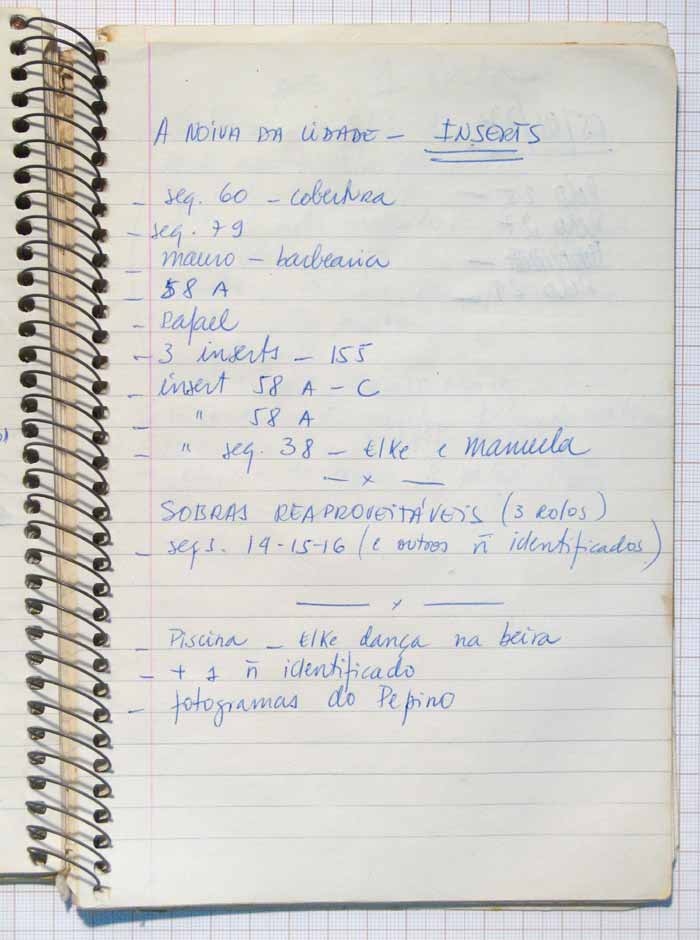 A NOIVA DA CIDADE - INSERTS
- seq. 60 - cobertura
- seq. 79
- mauro - barbearia
- 58 A
- Rafael
- 3 inserts - 155
- insert 58 A - C
- " 58 A
- " seq. 38 - Elke e Manuela
— x —
SOBRAS REAPROVEITÁVEIS (3 ROLOS)
- seqs. 14-15-16 (e outros ñ identificados)
— x —
- Piscina - Elke dança na beira
- + 1 ñ identificado
- fotogramas do Pepino